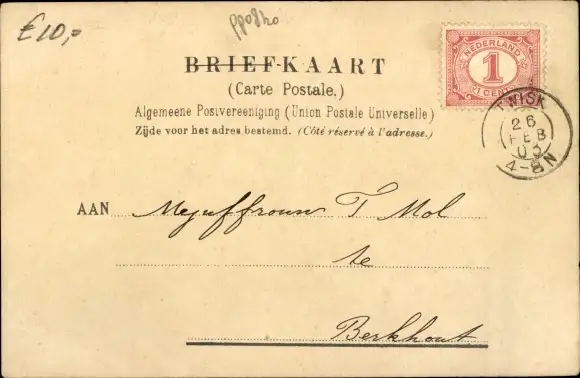 €10,-
BRIEFKAART
(Carte Postale.)
Algemeene Postvereeniging (Union Postale Universelle)
Zijde voor het adres bestemd. (Côté réservé à l'adresse.)
NEDERLAND
1
1 CENT
TWISK
26
FEB
03
4-8N
AAN Mejuffrouw T Mol
te
Berkhout